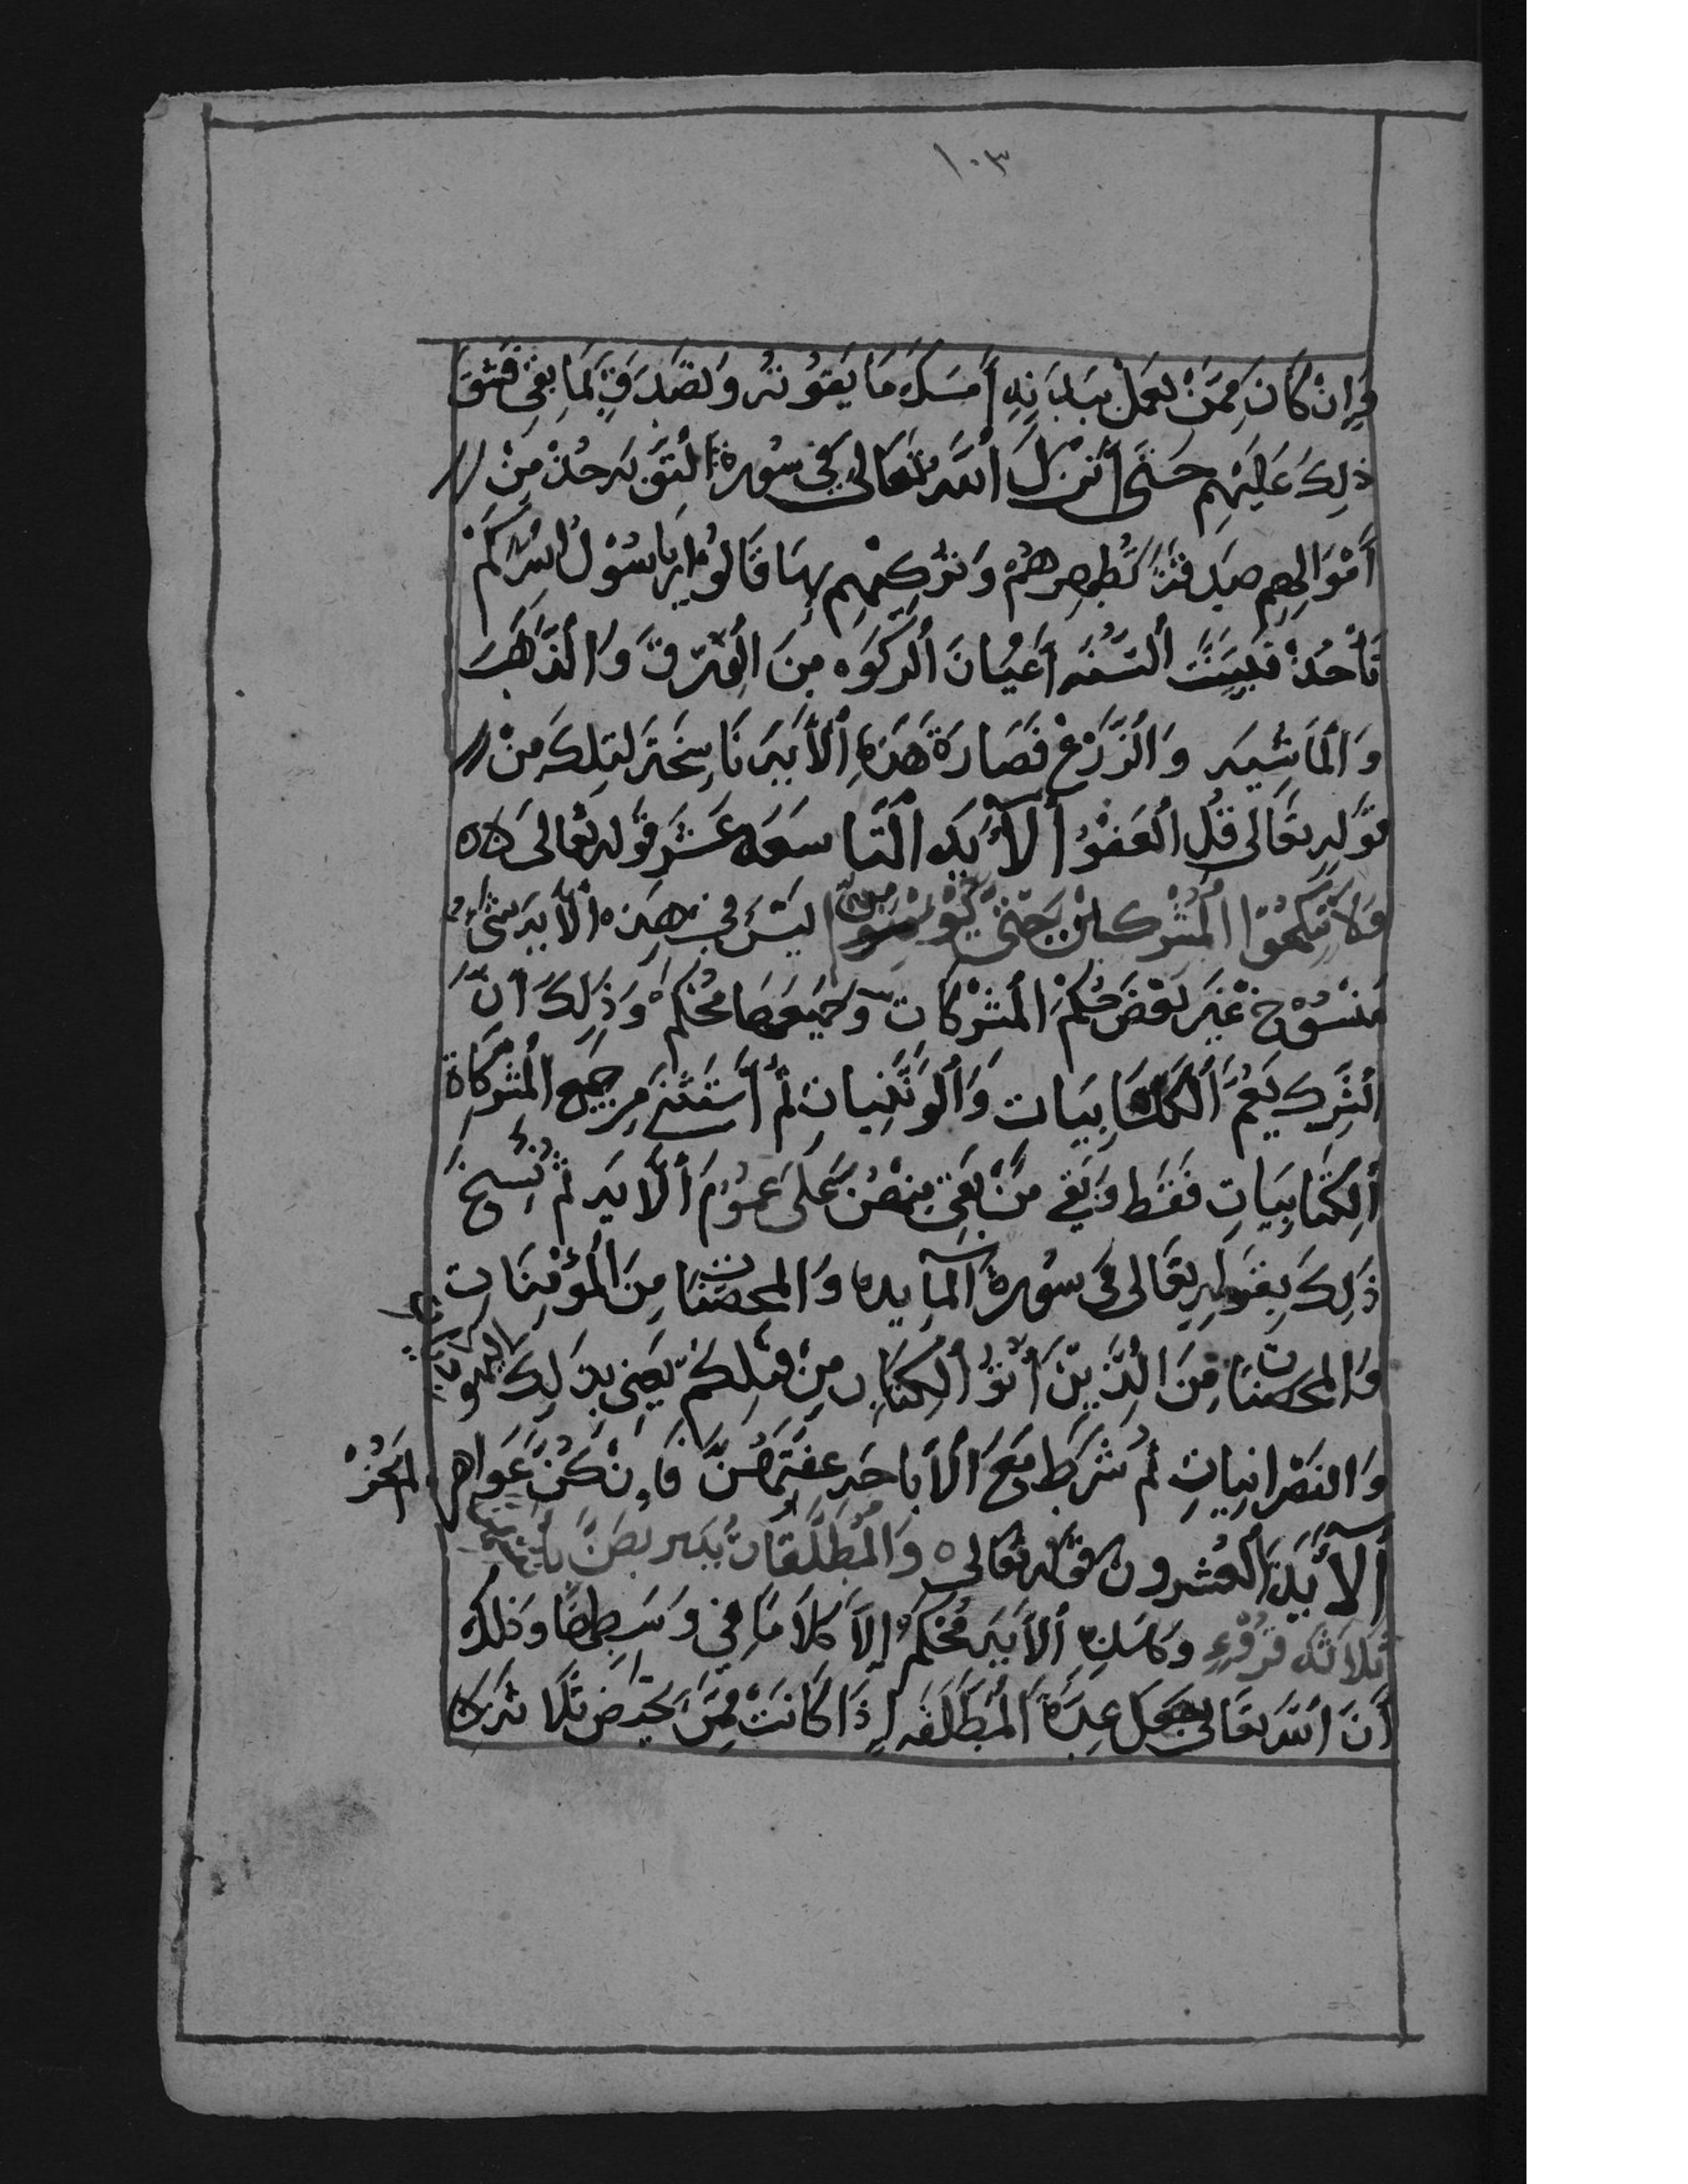 ١٠٣
وَإِنْ كَانَ مِمَّنْ يَعمَلُ بِبَدَنِهِ أَمسَكَ مَا يَقُوتُهُ وَتَصَدَّقَ بِمَا بَقِيَ فَشَقَّ
ذٰلِكَ عَلَيهِم حَتَّى أَنْزَلَ اللَّهُ تَعَالى فِي سُورة التَّوبَه خُذْ مِنْ
أَمْوَالِهِم صَدَقَةً تُطَهِرهُمْ وَتُزَكِيهِم بِهَا قَالُوا يَا رَسُوْلَ اللهِ كَمْ
نَأْخُذْ فَبَيَنَتِ السُّنَّه أَعْيَانَ الزَّكَوه مِنَ الوَرِقِ وَالذَّهَبَ
وَالمَاشِيَه وَالزَّرْعِ فَصَارَة هَذِهِ الأَيَه نَاسِخَة لتِلكَ مِنْ
قَولِهِ تَعَالى قُلِ العَفْوُ الآيَه التَّاسعَه عَشَر قَولُه تعَالى
وَلاَ تَنكِحُوا المُشْركَاتِ حَتَّى يُؤمِنَّ لَيْسَ فِي هَذِه الأيَه شَيءٌ
مَنْسُوْخ غَيْر بَعْض حُكْم المُشْرِكَاتِ وَجَمِيعهَا مُحْكَم وَذٰلِكَ أَنَّ
الشِّرك يَعُمُّ الكتَابِيَات وَالوَثَنِيَات ثُمَّ أَسْتَثْنَى مِن جَمِيعِ المُشْركَاة
الكِتَابِيَاتِ فَقَط وَبَقِي مَنْ بَقِيَ مِنهُنَّ عَلَى عُمُوم الأَيَه ثُمَّ نُسِخَ
ذٰلِكَ بِقَولِهِ تَعَالى فِي سُورة المَآيده وَالمحصَنَات مِنَ المُؤْمِنَات
وَالمحصَنَات مِنَ الَّذِينَ أُتُوا الكِتَاب مِنْ قَبلِكُم يَعنِي بِذَلِكَ اليَهُودِيَات
وَالنَصْرانِيَاتِ ثُمَّ شَرَطَ مَعَ الأَبَاحَه عِفَتَهُنَّ فَإِنْ كُنَّ عَوَاهِر لَم يَجُزْ
الآيَةَ العُشرون قَولُه تَعَالى وَالمُطَلَّقَاتُ يَتَرَبَّصْنَ بأنفسهن
ثَلاَثَه قُرُوءٍ وَ الأَيَه مُحْكَم إِلاَّ كَلاَمًا فِي وَسَطِهَا وَذٰلِكَ
أَنَّ اللَّهَ تَعَالى جَعَلَ عِدَّةَ المُطَلَّقَه إِذَا كَانَتْ مِمَّن تَحِيضُ ثَلَاثَة